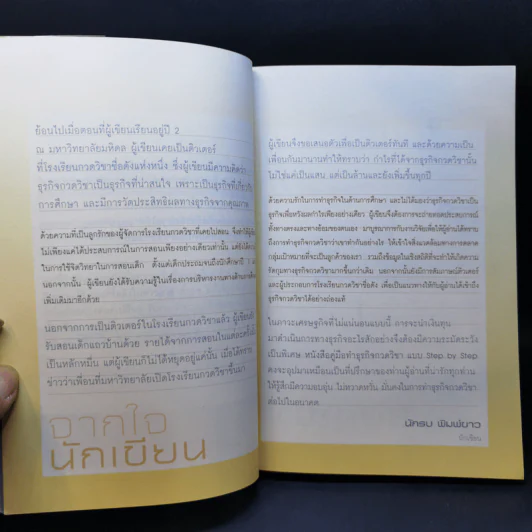 ย้อนไปเมื่อตอนที่ผู้เขียนเรียนอยู่ปี 2
ณ มหาวิทยาลัยมหิดล ผู้เขียนเคยเป็นติวเตอร์
ที่โรงเรียนกวดวิชาชื่อดังแห่งหนึ่ง ซึ่งผู้เขียนมีความคิดว่า
ธุรกิจกวดวิชาเป็นธุรกิจที่น่าสนใจ เพราะเป็นธุรกิจที่เกี่ยวกับ
การศึกษา และมีการวัดประสิทธิผลทางธุรกิจจากคุณภาพ
ด้วยความที่เป็นลูกรักของผู้จัดการโรงเรียนกวดวิชาที่เคยไปสอน จึงทำให้ผู้เขียน
ไม่เพียงแค่ได้ประสบการณ์ในการสอนเพียงอย่างเดียวเท่านั้น แต่ยังได้
ในการใช้จิตวิทยาในการสอนเด็ก ตั้งแต่เด็กประถมจนถึงนักศึกษาปี 1
นอกจากนั้น ผู้เขียนยังได้รับความรู้ในเรื่องการบริหารงานทางด้านการศึกษา
เพิ่มเติมมาอีกด้วย
นอกจากการเป็นติวเตอร์ในโรงเรียนกวดวิชาแล้ว ผู้เขียนยัง
รับสอนเด็กแถวบ้านด้วย รายได้จากการสอนในแต่ละครั้ง
เป็นหลักหมื่น แต่ผู้เขียนก็ไม่ได้หยุดอยู่แค่นั้น เมื่อได้ทราบ
ข่าวว่าเพื่อนที่มหาวิทยาลัยเปิดโรงเรียนกวดวิชาขึ้นมา
จากใจ
นักเขียน
ผู้เขียนจึงขอเสนอตัวเพื่อเป็นติวเตอร์ทันที และด้วยความเป็น
เพื่อนกันมานานทำให้ทราบว่า กำไรที่ได้จากธุรกิจกวดวิชานั้น
ไม่ใช่แค่เป็นแสน แต่เป็นล้านและยังเพิ่มขึ้นทุกปี
ด้วยความรักในการทำธุรกิจในด้านการศึกษา และไม่ได้มองว่าธุรกิจกวดวิชาเป็น
ธุรกิจเพื่อหวังผลกำไรเพียงอย่างเดียว ผู้เขียนจึงต้องการจะถ่ายทอดประสบการณ์
ทั้งทางตรงและทางอ้อมของตนเอง มาบูรณาการกับงานวิจัยเพื่อให้ผู้อ่านได้ทราบ
ถึงการทำธุรกิจกวดวิชาว่าเขาทำกันอย่างไร ให้เข้าใจสิ่งแวดล้อมทางการตลาด
กลุ่มเป้าหมายที่จะเป็นลูกค้าของเรา รวมถึงข้อมูลในเชิงสถิติที่จะทำให้เกิดความ
รัดกุมทางธุรกิจกวดวิชามากขึ้นกว่าเดิม นอกจากนั้นยังมีการสัมภาษณ์ติวเตอร์
และผู้ประกอบการโรงเรียนกวดวิชาชื่อดัง เพื่อเป็นแนวทางให้กับผู้อ่านได้เข้าถึง
ธุรกิจกวดวิชาได้อย่างถ่องแท้
ในภาวะเศรษฐกิจที่ไม่แน่นอนแบบนี้ การจะนำเงินทุน
มาดำเนินการทางธุรกิจอะไรสักอย่างจึงต้องมีความระมัดระวัง
เป็นพิเศษ หนังสือคู่มือทำธุรกิจกวดวิชา แบบ Step by Step
คงจะอุปมาเหมือนเป็นที่ปรึกษาของท่านผู้อ่านที่น่ารักทุกท่าน
ให้รู้สึกมีความอบอุ่น ไม่หวาดหวั่น มั่นคงในการทำธุรกิจกวดวิชา
ต่อไปในอนาคต
นัทธน พิมพ์ขาว
นักเขียน